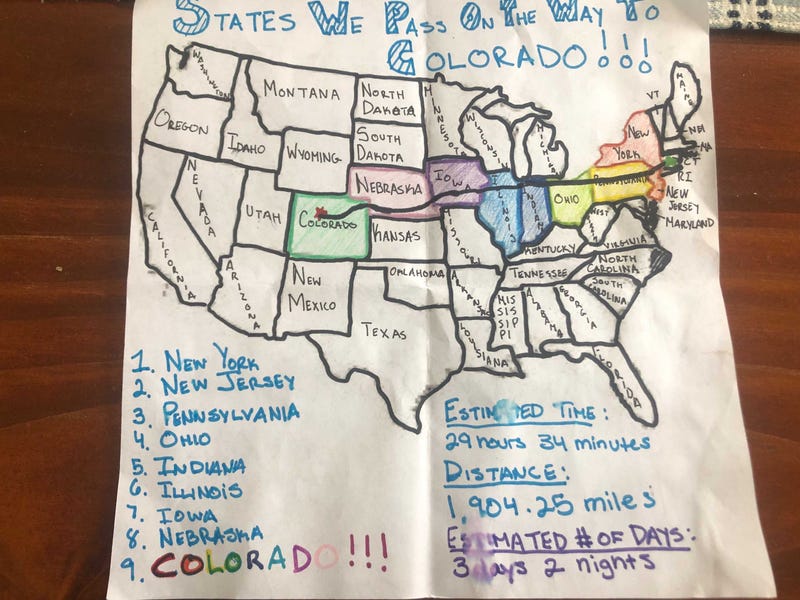 STATES WE PASS ON THE WAY TO
COLORADO!!!
WASHINGTON
MONTANA
NORTH
DAKOTA
MINNESOTA
MAINE
VT
NH
MA
OREGON
IDAHO
WYOMING
SOUTH
DAKOTA
WISCONSIN
MICHIGAN
NEW
YORK
CT
RI
NEVADA
UTAH
COLORADO
NEBRASKA
IOWA
ILLINOIS
INDIANA
OHIO
PENNSYLVANIA
NEW
JERSEY
MARYLAND
CALIFORNIA
KANSAS
MISSOURI
KENTUCKY
WEST
VIRGINIA
ARIZONA
NEW
MEXICO
OKLAHOMA
ARKANSAS
TENNESSEE
NORTH
CAROLINA
SOUTH
CAROLINA
TEXAS
LOUISIANA
MIS
SIS
SIP
PI
ALABAMA
GEORGIA
FLORIDA
1. NEW YORK
2. NEW JERSEY
3. PENNSYLVANIA
4. OHIO
5. INDIANA
6. ILLINOIS
7. IOWA
8. NEBRASKA
9. COLORADO!!!
ESTIMATED TIME:
29 hours 34 minutes
DISTANCE:
1,904.25 miles
ESTIMATED # OF DAYS:
3 days 2 nights